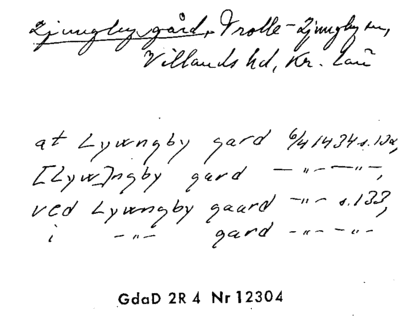 Ljungby gård, Trolle-Ljungby sn,
Villands hd, Kr. län
at Lywngby gard 6/4 1434 s. 132,
[Lyw]ngby gard —"— —"—,
ved Lywngby gaard —"— s. 133,
i —"— gard —"— —"—
GdaD 2R 4 Nr 12304